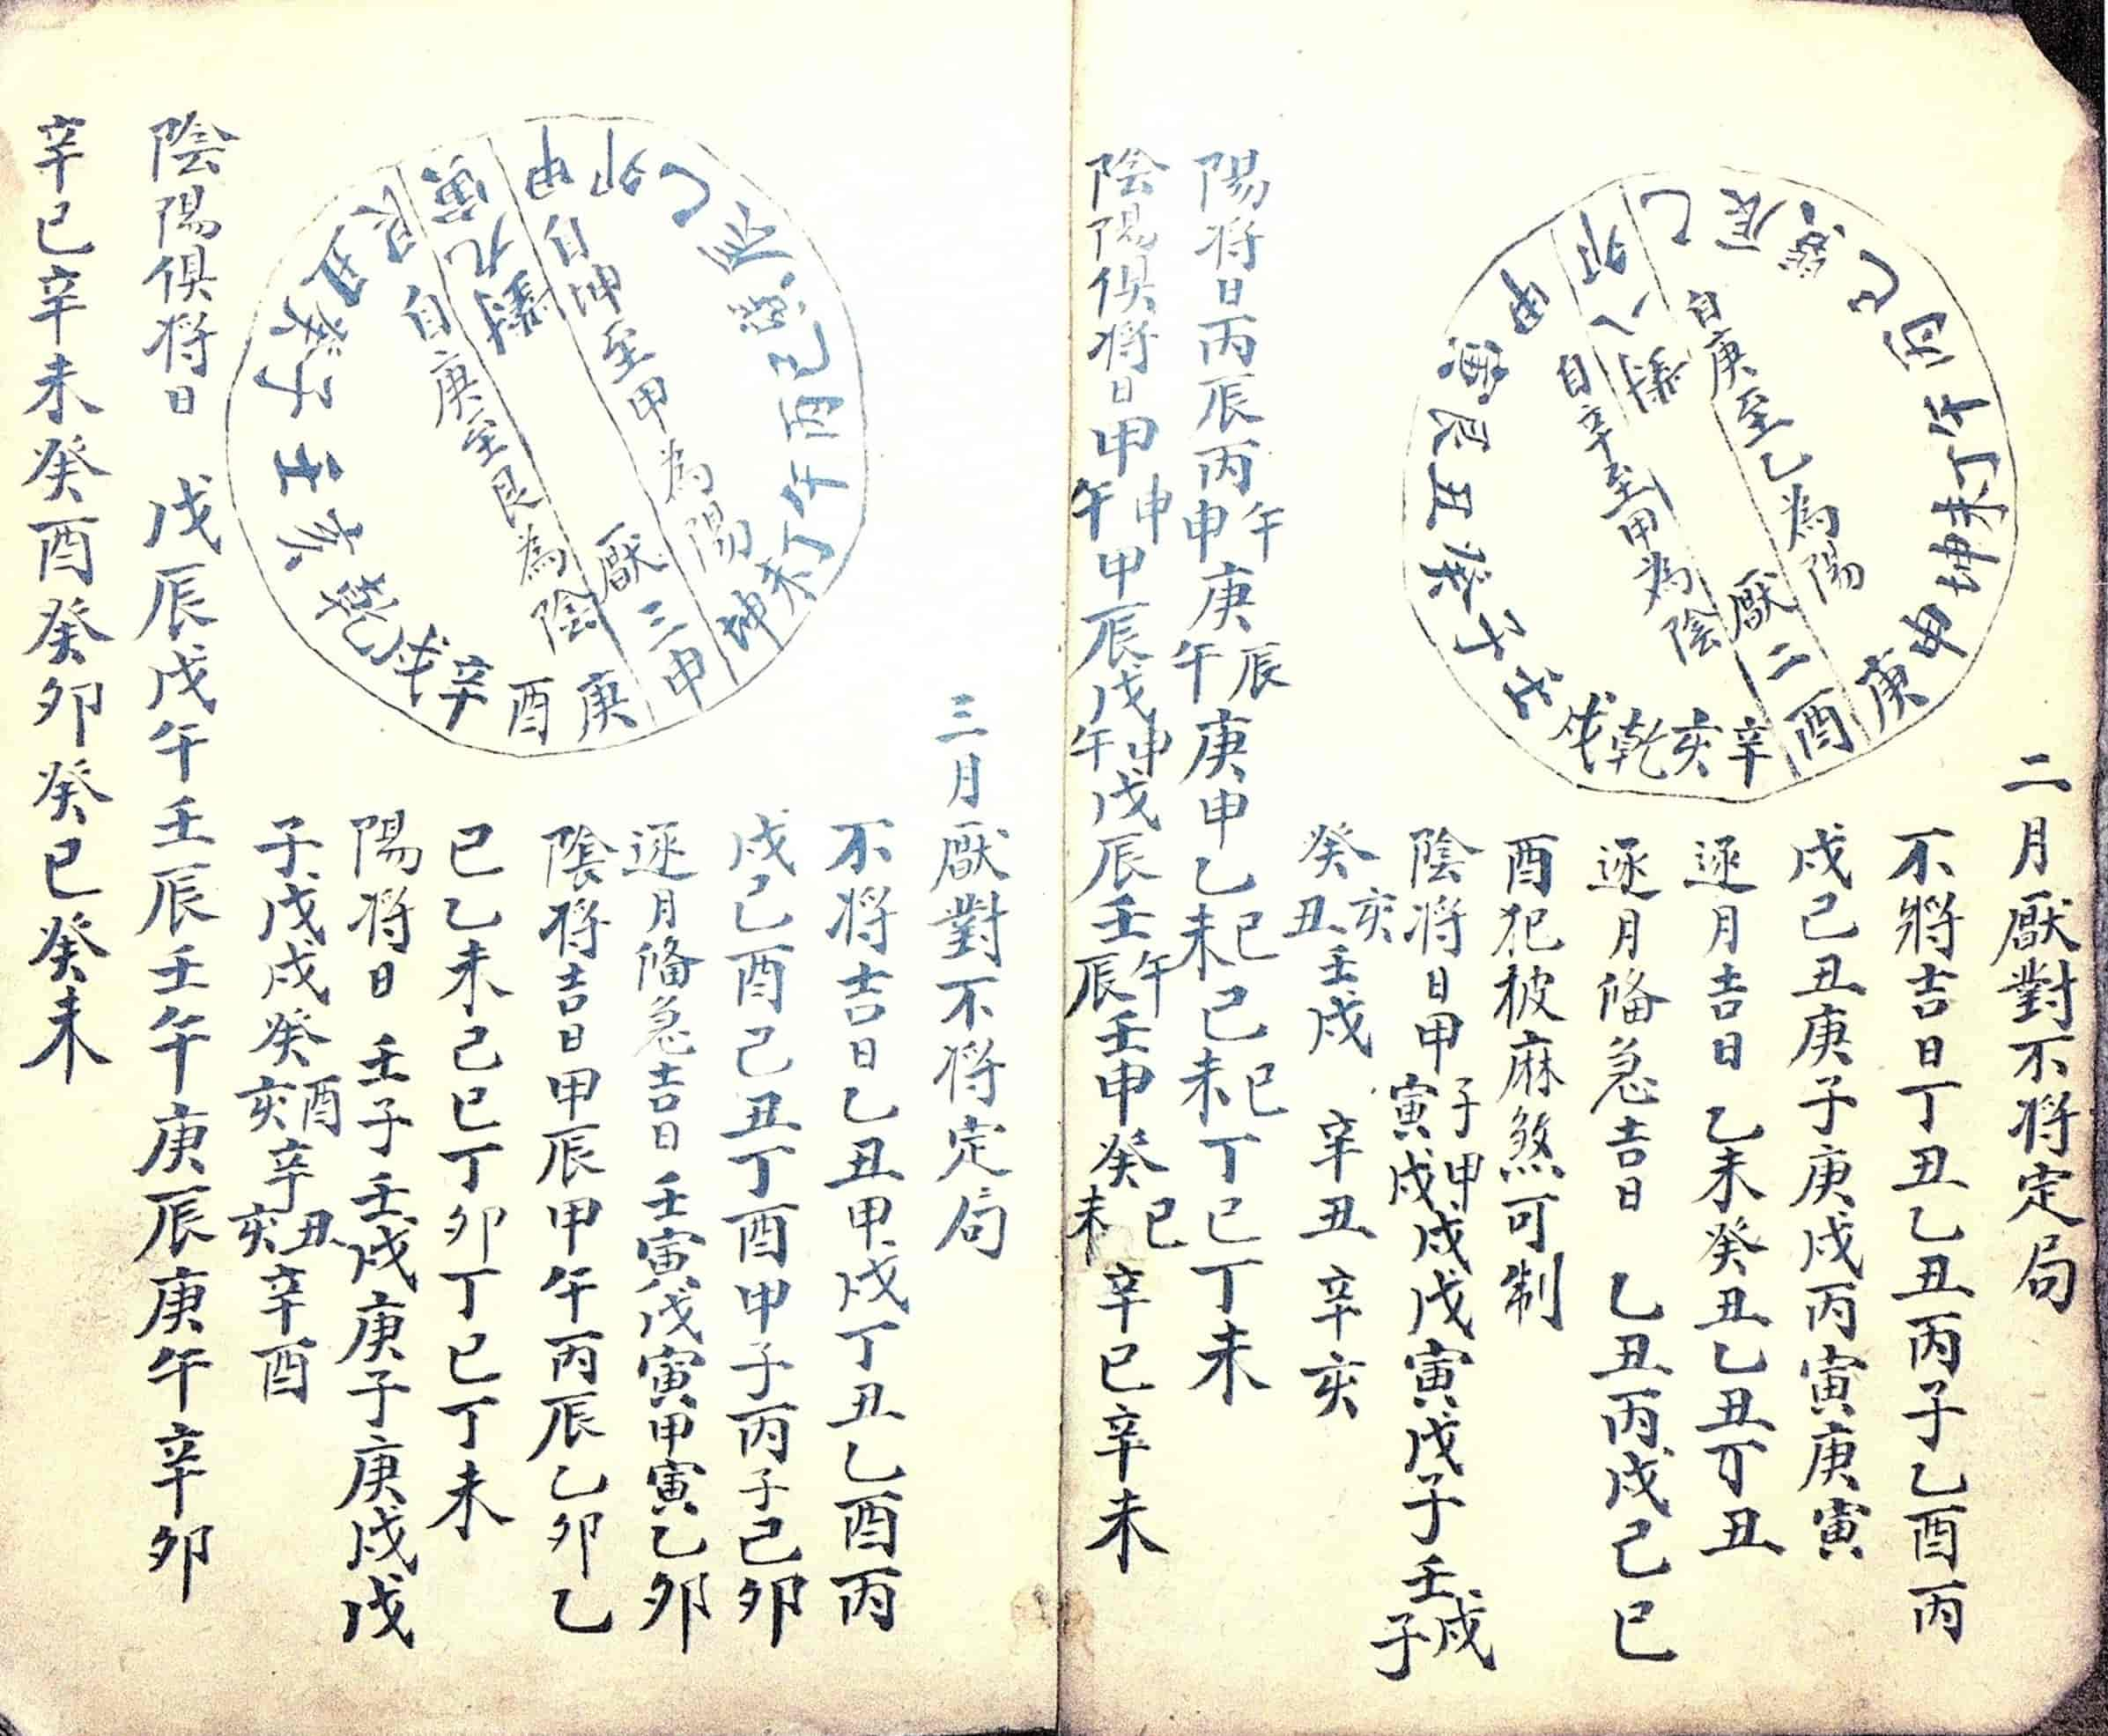 二月厭對不将定局
不將吉日丁丑乙丑丙子乙酉丙
戌己丑庚子庚戌丙寅庚寅
逐月吉日 乙未癸丑乙丑丁丑
逐月俻急吉日 乙丑丙戌己巳
酉犯披麻煞可制
陰将日甲子寅甲戌戌戊寅戊子壬戌子
癸亥丑壬戌 辛丑辛亥
自庚至乙為陽
自辛至甲為陰
厭二酉
卯八
乙辰巽巳丙午丁未坤申庚
辛亥乾戌壬子癸丑艮寅甲
陽将日丙辰丙午申庚辰午庚申乙巳未己巳未丁巳丁未
陰陽俱将日甲申午甲辰戊申午戊辰壬午辰壬申癸巳未辛巳辛未
三月厭對不将定局
不将吉日乙丑甲戌丁丑乙酉丙
戌己酉己丑丁酉甲子丙子己卯
逐月俻急吉日壬寅戊寅甲寅乙卯
陰将吉日甲辰甲午丙辰乙卯乙
巳乙未己巳丁卯丁巳丁未
陽将日 壬子壬戌庚子庚戌戊
子戊戌癸酉亥辛丑亥辛酉
自坤至甲為陽
自庚至艮為陰
厭三申
寅九
甲卯乙辰巽巳丙午丁未坤
庚酉辛戌乾亥壬子癸丑艮
陰陽俱将日 戊辰戊午壬辰壬午庚辰庚午辛卯
辛巳辛未癸酉癸卯癸巳癸未